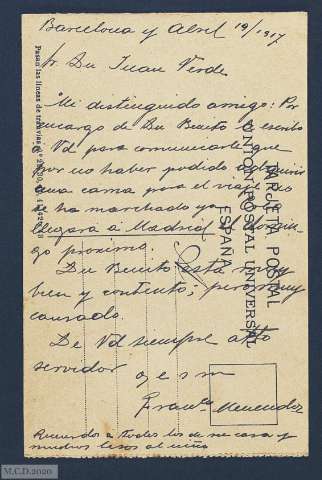 Barcelona y Abril 19/1917
Sr. Dn Juan Verde
Mi distinguido amigo: Por
encargo de Dn Benito le escribo
á Vd para comunicarle que
por no haber podido adquirir
una cama para el viaje no
se ha marchado ya
llegará á Madrid Domin-
go proximo.
Dn Benito está muy
bien y contento; pero muy
cansado.
De Vd siempre atto
servidor q e s m
Franco Menendez
Recuerdos á todos los de su casa y
muchos besos al niño
TARJETA POSTAL
UNION POSTAL UNIVERSAL
ESPAÑA
Pasan las lineas de tranvias
M.C.D.2020